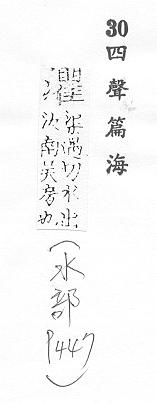 30四聲篇海
灈渠遇切水出
汝南吴房也
(水部 P447)